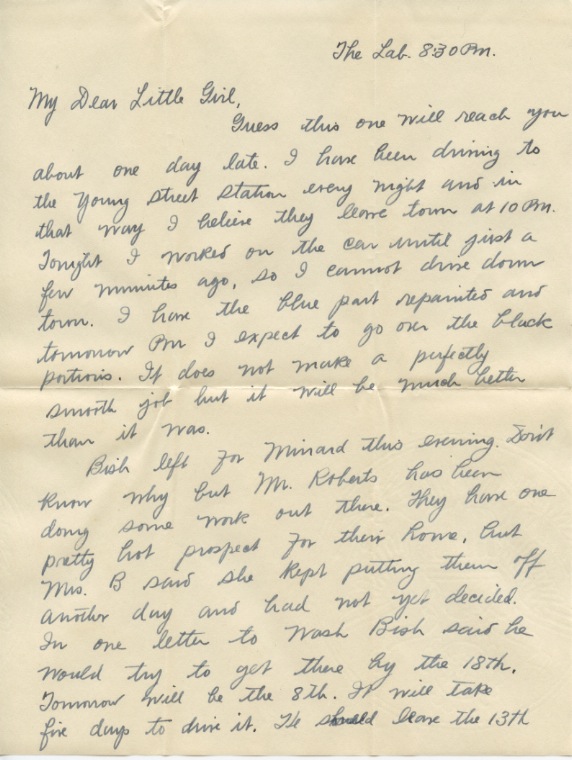 The Lab. 8:30 Pm.
My Dear Little Girl,
Guess this one will reach you
about one day late. I have been driving to
the Young Street Station every night and in
that way I believe they leave town at 10 Pm.
Tonight I worked on the car until just a
few minutes ago, so I cannot drive down
town. I have the blue part repainted and
tomorrow Pm I expect to go over the black
portions. It does not make a perfectly
smooth job but it will be much better
than it was.
Bish left for Minard this evening. Don't
know why but Mr. Roberts has been
doing some work out there. They have one
pretty hot prospect for their home, but
Mrs. B said she kept putting them off
another day and had not yet decided.
In one letter to Wash Bish said he
would try to get there by the 18th.
Tomorrow will be the 8th. It will take
five days to drive it. He should leave the 13th